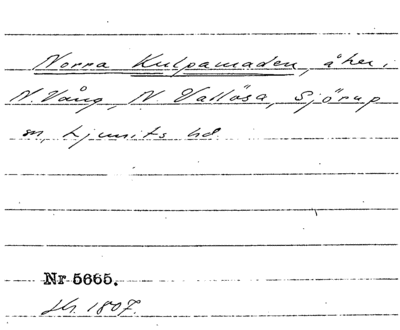 Norra Kulpamaden, åker,
N. Vång, N Vallösa, Sjörup
sn, Ljunits hd
Nr 5665.
1807.